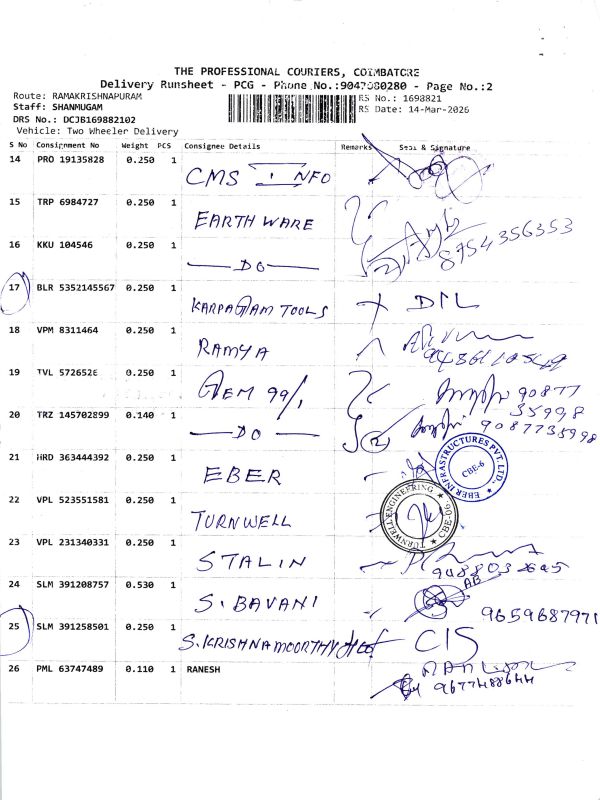 THE PROFESSIONAL COURIERS, COIMBATORE
Delivery Runsheet - PCG - Phone No.:9047080280 - Page No.:2
Route: RAMAKRISHNAPURAM
RS No.: 1698821
Staff: SHANMUGAM
RS Date: 14-Mar-2026
DRS No.: DCJB169882102
Vehicle: Two Wheeler Delivery
S No Consignment No Weight PCS Consignee Details Remarks Seal & Signature
14 PRO 19135828 0.250 1 CMS INFO
15 TRP 6984727 0.250 1 EARTH WARE
16 KKU 104546 0.250 1 DO 8754356353
17 BLR 5352145567 0.250 1 KARPAGAM TOOLS DIL
18 VPM 8311464 0.250 1 RAMYA
19 TVL 572652E 0.250 1 GEM 99/, 90877
35998
20 TRZ 145702899 0.140 1 DO 9087735998
21 HRD 363444392 0.250 1 EBER
EBER INFRASTRUCTURES PVT. LTD. CBE-6
22 VPL 523551581 0.250 1 TURNWELL
TURNWELL ENGINEERING CBE-06
23 VPL 231340331 0.250 1 STALIN
24 SLM 391208757 0.530 1 S. BAVANI AB 9659687971
25 SLM 391258501 0.250 1 S. KRISHNAMOORTHY CIS
26 PML 63747489 0.110 1 RANESH 9677488644